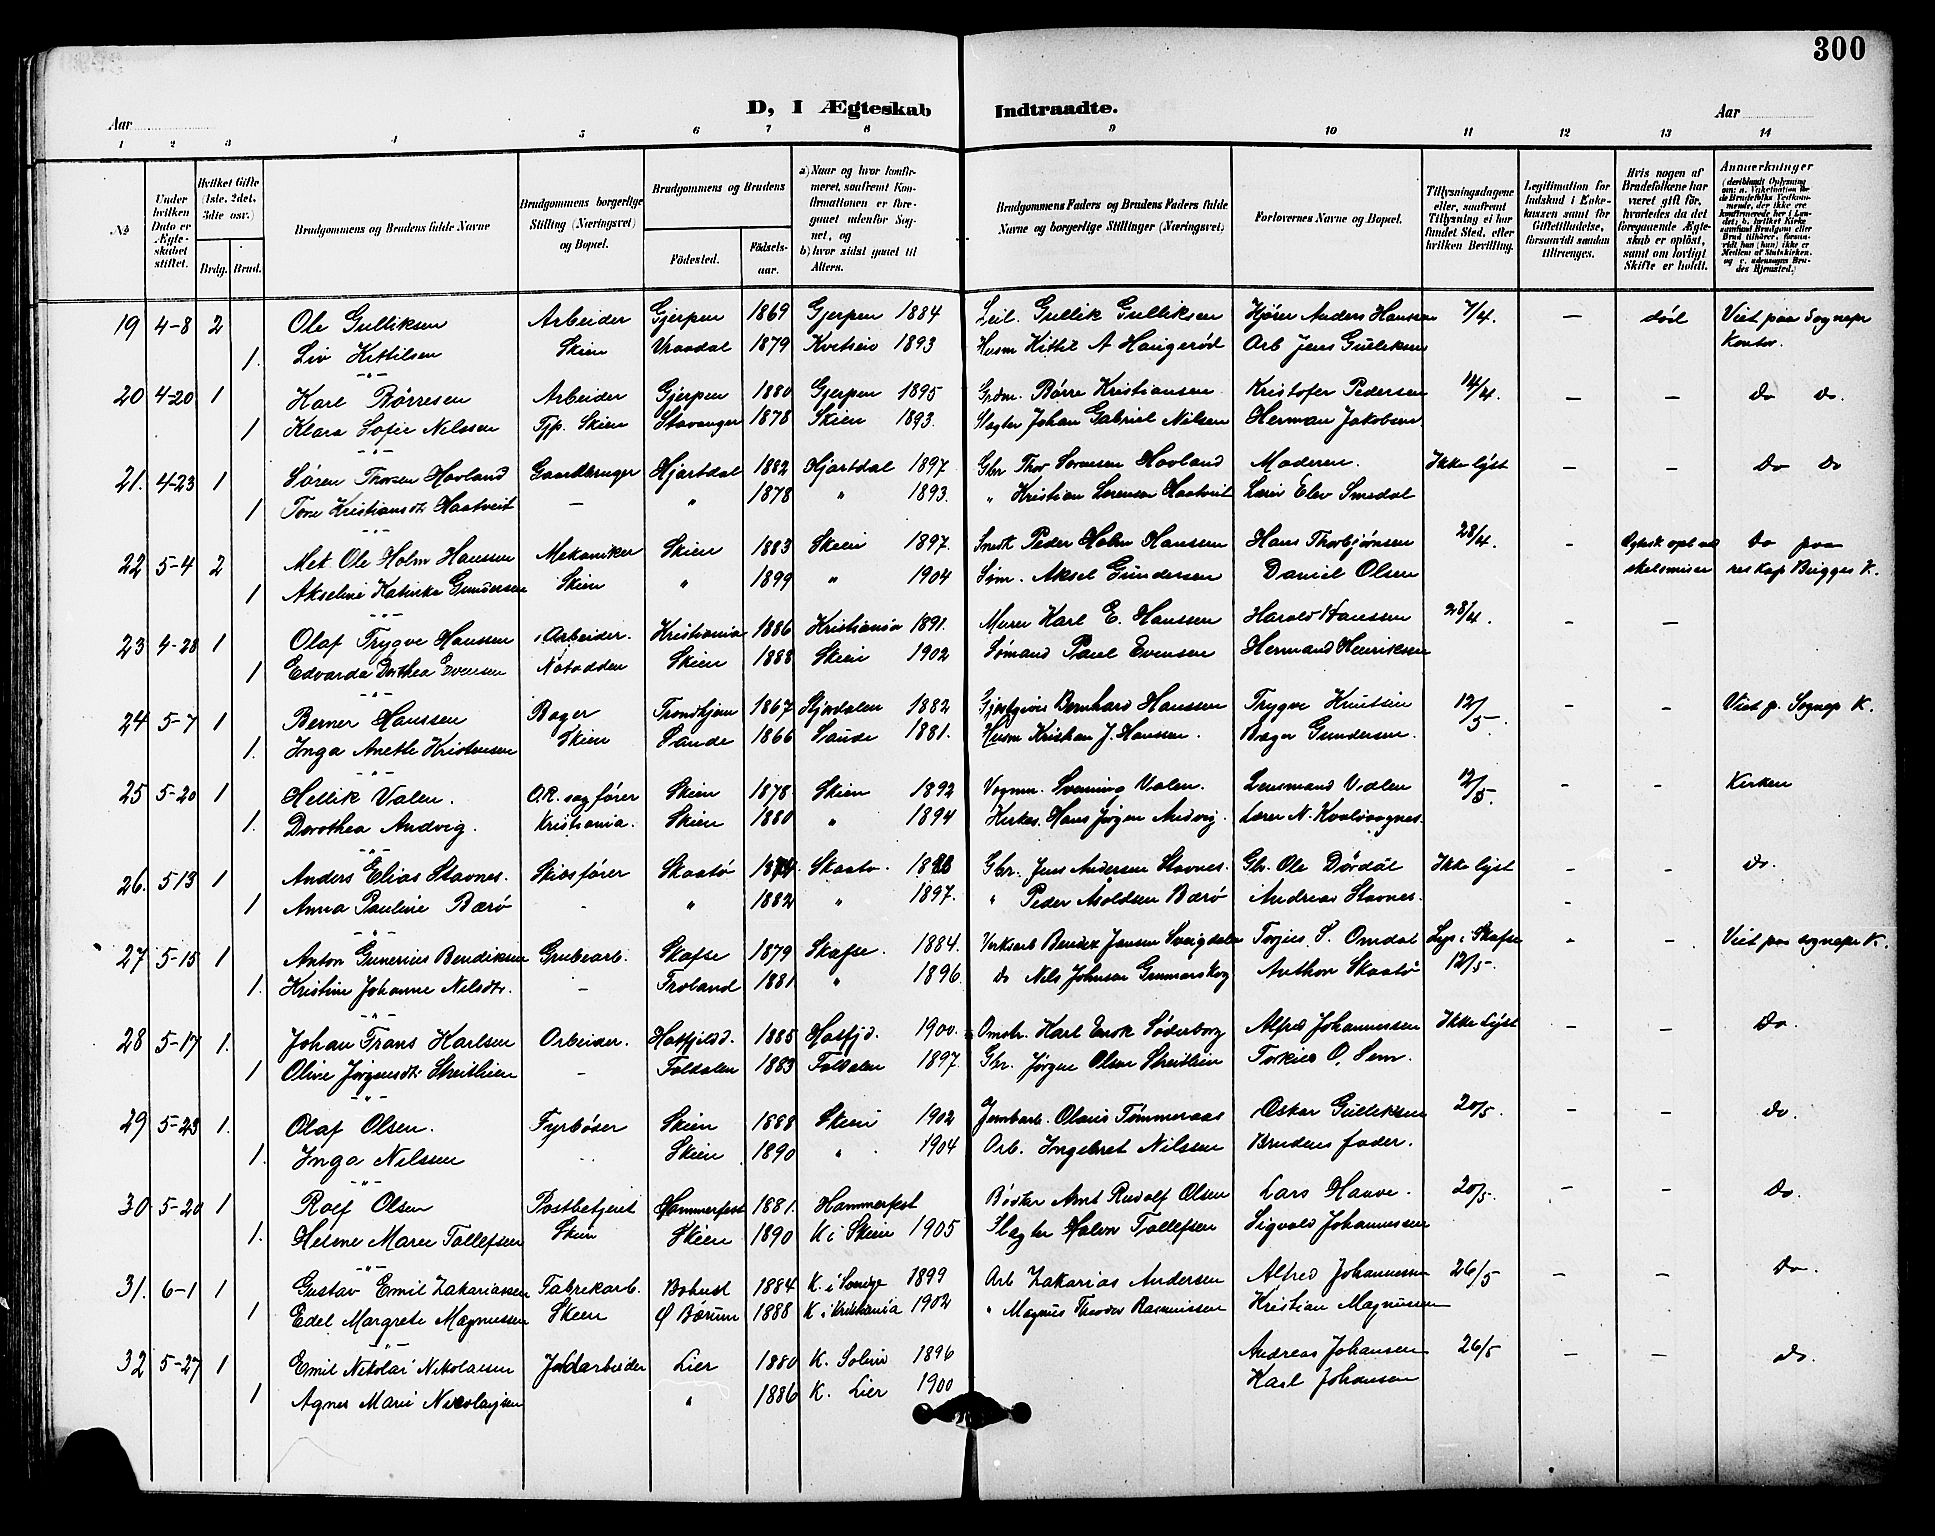 300
D, I Ægteskab Indtraadte.
Aar Aar
1 2 3 4 5 6 7 8 9 10 11 12 13 14
No
Under hvilken Dato er Ægteskabet stiftet.
Hvilket Gifte (1ste, 2det, 3die osv.)
Brdg. Brud.
Brudgommens og Brudens fulde Navne
Brudgommens borgerlige Stilling (Næringsvei) og Bopæl.
Brudgommens og Brudens
Födested. Födselsaar.
a) Naar og hvor konfirmeret, saafremt Konfirmationen er foregaaet udenför Sognet, og
b) hvor sidst gaaet til Alters.
Brudgommens Faders og Brudens Faders fulde Navne og borgerlige Stillinger (Næringsvei)
Forlovernes Navne og Bopæl.
Tillysningsdagene eller, saafremt Tillysning ei har fundet Sted, efter hvilken Bevilling.
Legitimation for Indskud i Enkekassen samt for Giftetilladelse, forsaavidt saadan tiltrænges.
Hvis nogen af Brudefolkene har været gift för, hvorledes da det foregaaende Ægteskab er oplöst, samt om lovligt Skifte er holdt.
Anmerkninger
19 4-8 2 Ole Gulliksen Arbeider Gjerpen 1869 Gjerpen 1884 Leil. Gullik Gulliksen Kjører Anders Hanssen 7/4. — død Viet paa Sognepr
1. Liv Kittilsen Skien Vraadal 1879 Kvitseid 1893 Husm Kittil A Haugerød Arb Jens Gulliksen Kontor.
20 4-20 1 Karl Børresen Arbeider Gjerpen 1880 Gjerpen 1895 Grdm. Børre Kristiansen Kristofer Pedersen 14/4. — — Do Do.
1 Klara Sofie Nilssen Tjp. Skien Stavanger 1878 Skien 1893. Slagter Johan Gabriel Nilsen Herman Jakobsen
21. 4-23 1 Søren Thorsen Hovland Gaardbruger Hjartdal 1882 Hjartdal 1897. Gbr Thor Sørensen Hovland Moderen. Ikke lyst — — Do Do
1 Tone Kristiansdtr Haatveit — " 1878 " 1893. " Kristian Sørensen Haatveit Elev Smedal
22 5-4 2 Mek. Ole Holm Hanssen Mekaniker Skien 1883 Skien 1897. Peder Holm Hansen Hans Thorbjørnsen 28/4. - Do paa
1 Akseline Katinka Gundersen Skien " 1899 " 1904 Søm. Aksel Gundersen Daniel Olsen skelsmisse reskap Brigges K.
23 4-28 1 Olaf Trygve Hanssen Arbeider. Kristiania 1886 Kristiania 1891. Murer Karl E. Hanssen Harald Hanssen 28/4. - —
1 Edvarda Dorthea Evensen Notodden Skien 1888 Skien 1902 Sømand Paul Evensen Hermand Henriksen
24 5-7 1 Berner Hanssen Bager Trondhjem 1867 1882 Bernhard Hanssen Trygve Knutsen 12/5. - - Viet p. Sognep K.
1. Inga Anette Kristensen Skien Saude 1866 Saude 1881. Husm Kristian J. Hanssen. Bager Gundersen.
25 5-20 1 Hellik Valen. O.R. sagfører Skien 1878 Skien 1892 Vognm. Svening Valen. Lensmand Valen 12/5. - - Kirken
1. Dorothea Andvig. Kristiania. Skien 1880 " 1894 Kirkes. Hans Jørgen Andvig. Lærer N.
26. 5 13 1 Anders Elias Stavnes. Skibsfører Skaatø Skaatø. Gbr. Jens Andersen Stavnes. Gbr. Ole Dørdal Ikke lyst - - Do.
1 Anna Pauline Bærø - " 1882 " 1897. " Peder Bærø Andreas Stavnes. -
27 5-15 1 Anton Gunerius Bendiksen Grubearb. Skafse 1879 Skafse. 1884. Verksarb Jansen S. Omdal Lys. i Skafse - - Viet paa sognepr K.
1. Kristine Johanne Nilsdtr. - Froland 1881 " 1896. Do Nils Johnsen Anthon Skaatø 12/5.
28 5-17 1. Johan Frans Karlsen Arbeider. Hatfjeldd. 1885 Hatfjd. 1900. Karl Enok Søderborg Alfred Johannessen Ikke Lyst — — Do.
1 Oline Jørgensdtr Streitlien - Foldalen 1883 Foldalen 1897. Gbr. Jørgen Olsen Streitlien O. Sem.
29 5-23 1. Olaf Olsen. Fyrbøter Skien 1888 Skien 1902 Jernbarb. Olaus Tømmeraas Oskar Gulliksen 20/5. — - Do.
1. Inga Nilssen - Skien 1890 " 1904 Arb. Ingebret Nilssen Brudens fader.
30 5-20 1 Rolf Olsen Postbetjent Hammerfest 1881. Hammerfest Bødker Amt Rudolf Olsen Lars Haave. 20/5. — - Do.
1. Helene Marie Tollefsen Skien Skien 1890 K i Skien 1905 Slagter Halvor Tollefsen Sigvald Johannessen
31. 6-1 1 Gustav Emil Zakariassen Fabrikarb. Bohusl 1884 K. i 1899 Arb Zakarias Andersen Alfred Johannessen 26/5 — — Do.
1 Edel Margrete Magnussen Skien Ø Bærum 1888 K i Kristiania 1902 " Magnus Theodor Rasmussen Kristian Magnussen
32 5-27 1 Emil Nikolai Nikolaisen Lier 1880 K. 1896 Andreas Johansen 26/5 — — Do.
1 Agnes Marie Nicolaysen " 1886 K. Lier 1900 Karl Johansen